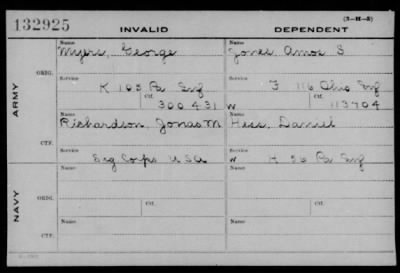 (3-H-8)
132925 INVALID DEPENDENT
ARMY
NAVY
ORIG.
CTF.
ORIG.
CTF.
Name
Myers, George
Name
Jones, Amos S
Service
K 103 Pa Inf
Service
F 116 Ohio Inf
Ctf.
300431
Ctf.
W 113704
Name
Richardson, Jonas M
Name
Hess, Daniel
Service
Sig Corps USA
Service
W H 56 Pa Inf
Name
Name
Service
Ctf.
Service
Ctf.
Name
Name